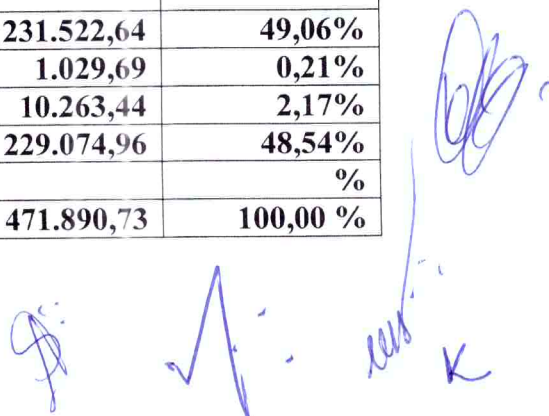 231.522,64 49,06%
1.029,69 0,21%
10.263,44 2,17%
229.074,96 48,54%
%
471.890,73 100,00 %
K